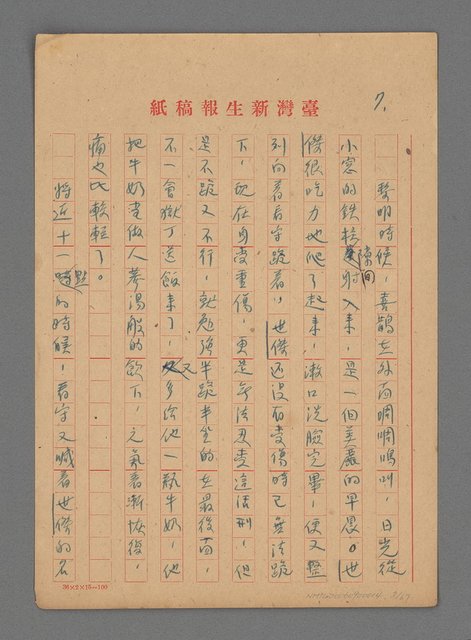 臺灣新生報稿紙
7.
黎明時候，喜鵲在外面啁啁鳴叫，日光從
小窓的鉄柱隙间射入来，是一個美麗的早晨。世
傑很吃力地爬了起来，漱口洗臉完畢，便又整
列向着看守跪着，世傑还没有受傷時已無法跪
下，现在身受重傷，更是無法忍受這活刑，但
是不跪又不行，就勉強半跪半坐的在最後面，
不一會獄丁送飯来了，又多給他一瓶牛奶，他
把牛奶當做人蔘湯般的飲下，元氣着漸恢復，
痛也比較輕了。
將近十一點的時候，看守又喊着世傑的名
36×2×15＝100